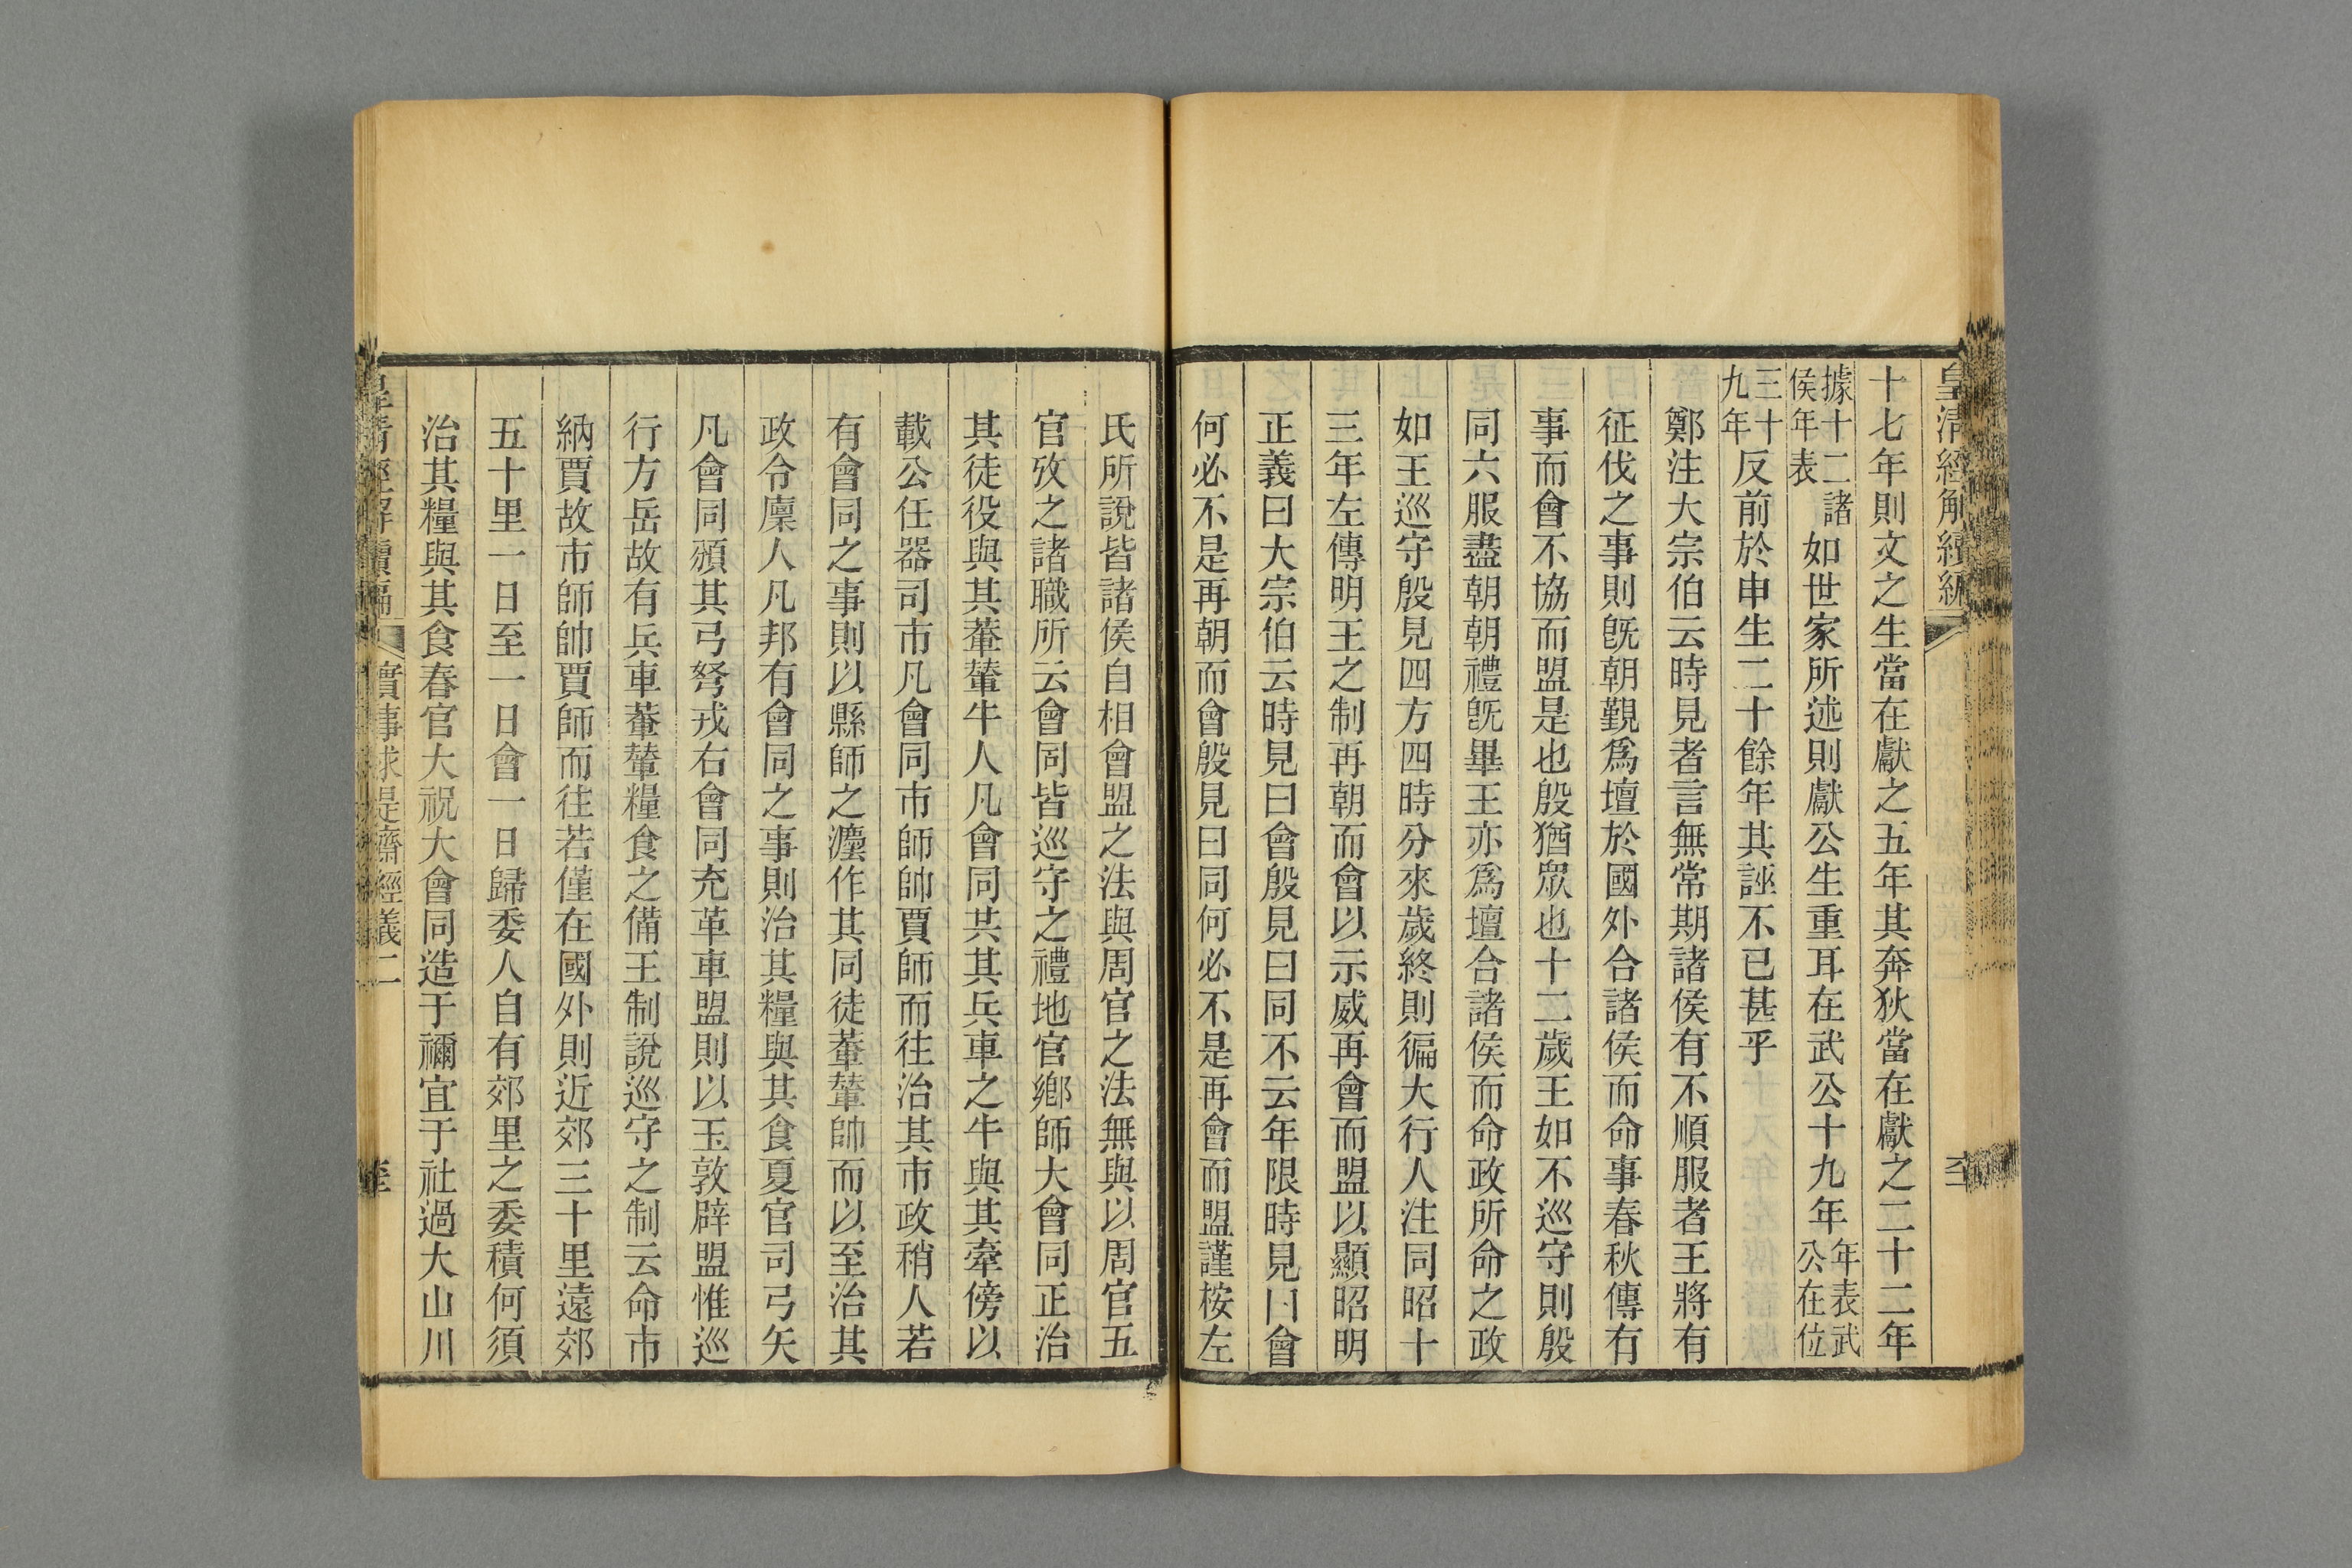 皇清經解續編
十七年則文之生當在獻之五年其奔狄當在獻之二十二年
據十二諸侯年表如世家所述則獻公生重耳在武公十九年年表武公在位
三十九年反前於申生二十餘年其誣不已甚乎
鄭注大宗伯云時見者言無常期諸侯有不順服者王將有
征伐之事則旣朝覲爲壇於國外合諸侯而命事春秋傳有
事而會不協而盟是也殷猶眾也十二歲王如不巡守則殷
同六服盡朝朝禮旣畢王亦爲壇合諸侯而命政所命之政
如王巡守殷見四方四時分來歲終則徧大行人注同昭十
三年左傳明王之制再朝而會以示威再會而盟以顯昭明
正義曰大宗伯云時見曰會殷見曰同不云年限時見曰會
何必不是再朝而會殷見曰同何必不是再會而盟謹桉左
氏所說皆諸侯自相會盟之法與周官之法無與以周官五
官攷之諸職所云會同皆巡守之禮地官鄉師大會同正治
其徒役與其輂輦牛人凡會同共其兵車之牛與其牽傍以
載公任器司市凡會同市師帥賈師而往治其市政稍人若
有會同之事則以縣師之灋作其同徒輂輦帥而以至治其
政令廩人凡邦有會同之事則治其糧與其食夏官司弓矢
凡會同頒其弓弩戎右會同充革車盟則以玉敦辟盟惟巡
行方岳故有兵車輂輦糧食之備王制說巡守之制云命市
納賈故市師帥賈師而往若僅在國外則近郊三十里遠郊
五十里一日至一日會一日歸委人自有郊里之委積何須
治其糧與其食春官大祝大會同造于禰宜于社過大山川
皇清經解續編 實事求是齋經義二